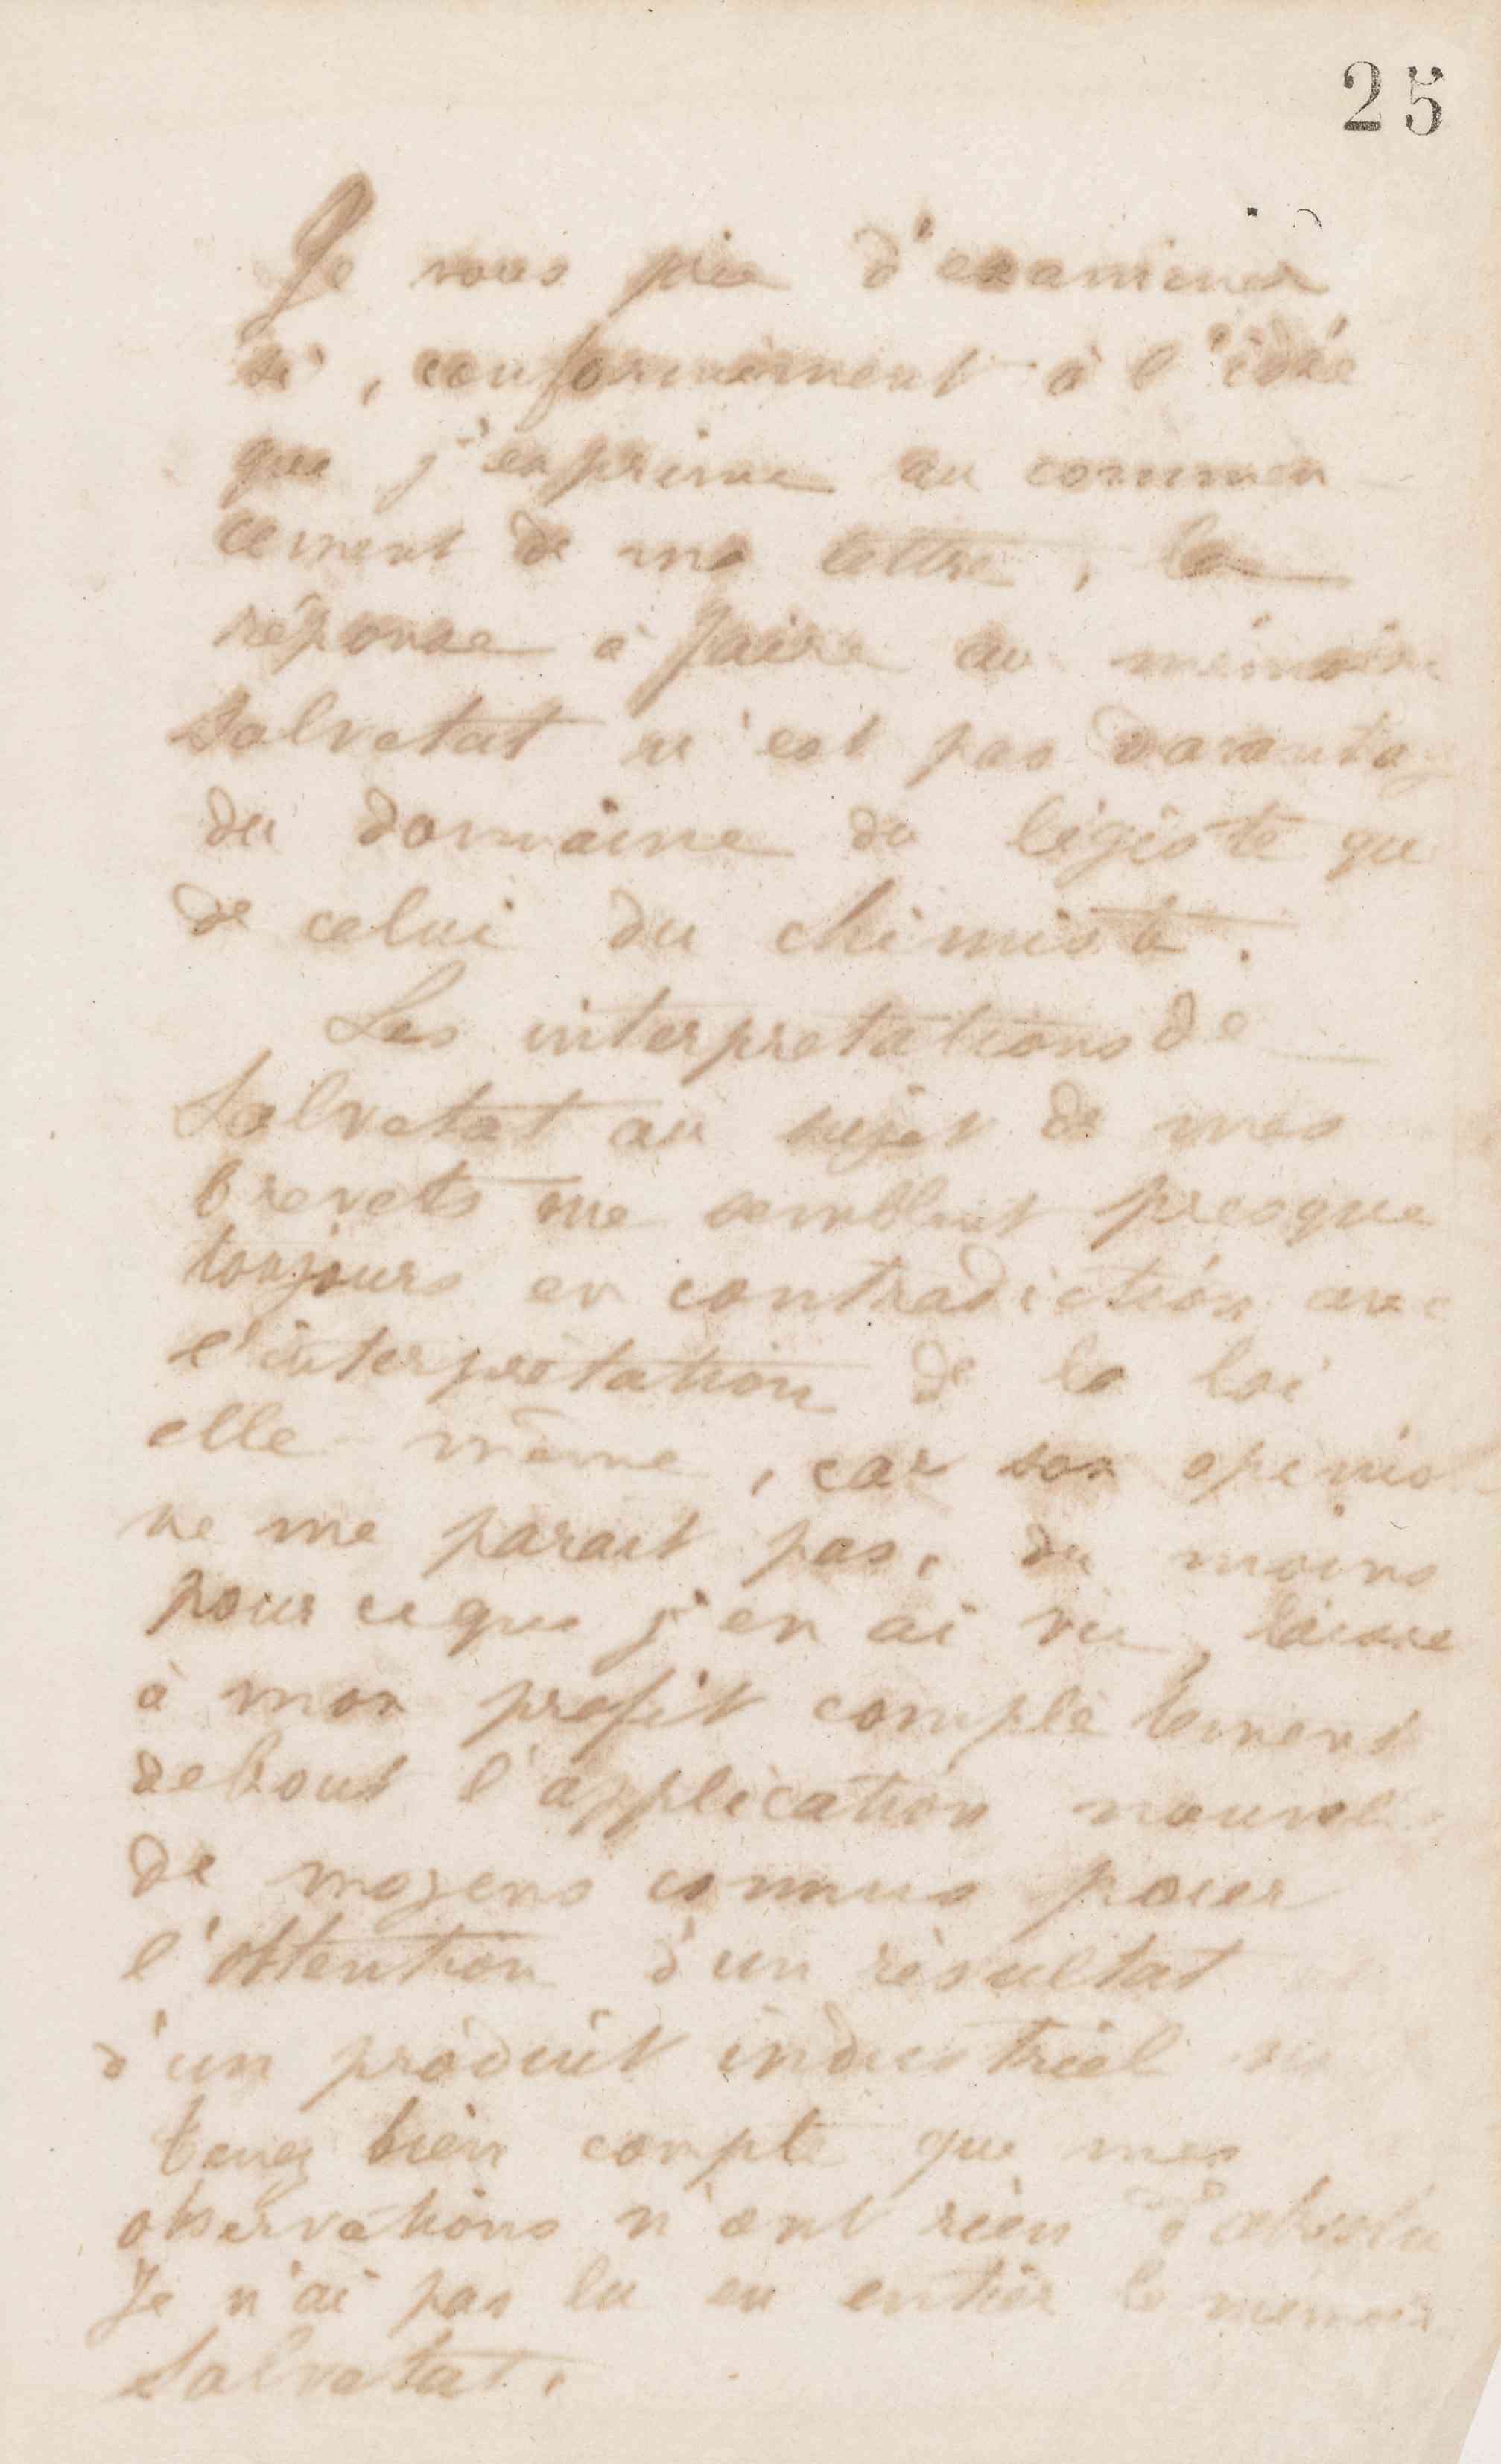 25
Je vous prie d'examiner
si, conformément à l'idée
que j'exprime au commen-
cement de ma lettre, la
réponse à faire au mémoire
Salvetat n'est pas davantag
du domaine du légiste que
de celui du chimiste.
Les interpretations de
Salvetat au sujet de mes
brevets me semblent presque
toujours en contradiction avec
l'interprétation de la loi
elle-même, car son opinio
ne me parait pas, du moins
pour ce que j'en ai vu, laisse
à mon profit complètement
debout l'application nouvelle
de moyens connus pour
l'obtention d'un résultat
d'un produit industriel
tenez bien compte que mes
observations n'ont rien d'absolu
Je n'ai pas lu en entier le mémoire
Salvetat.